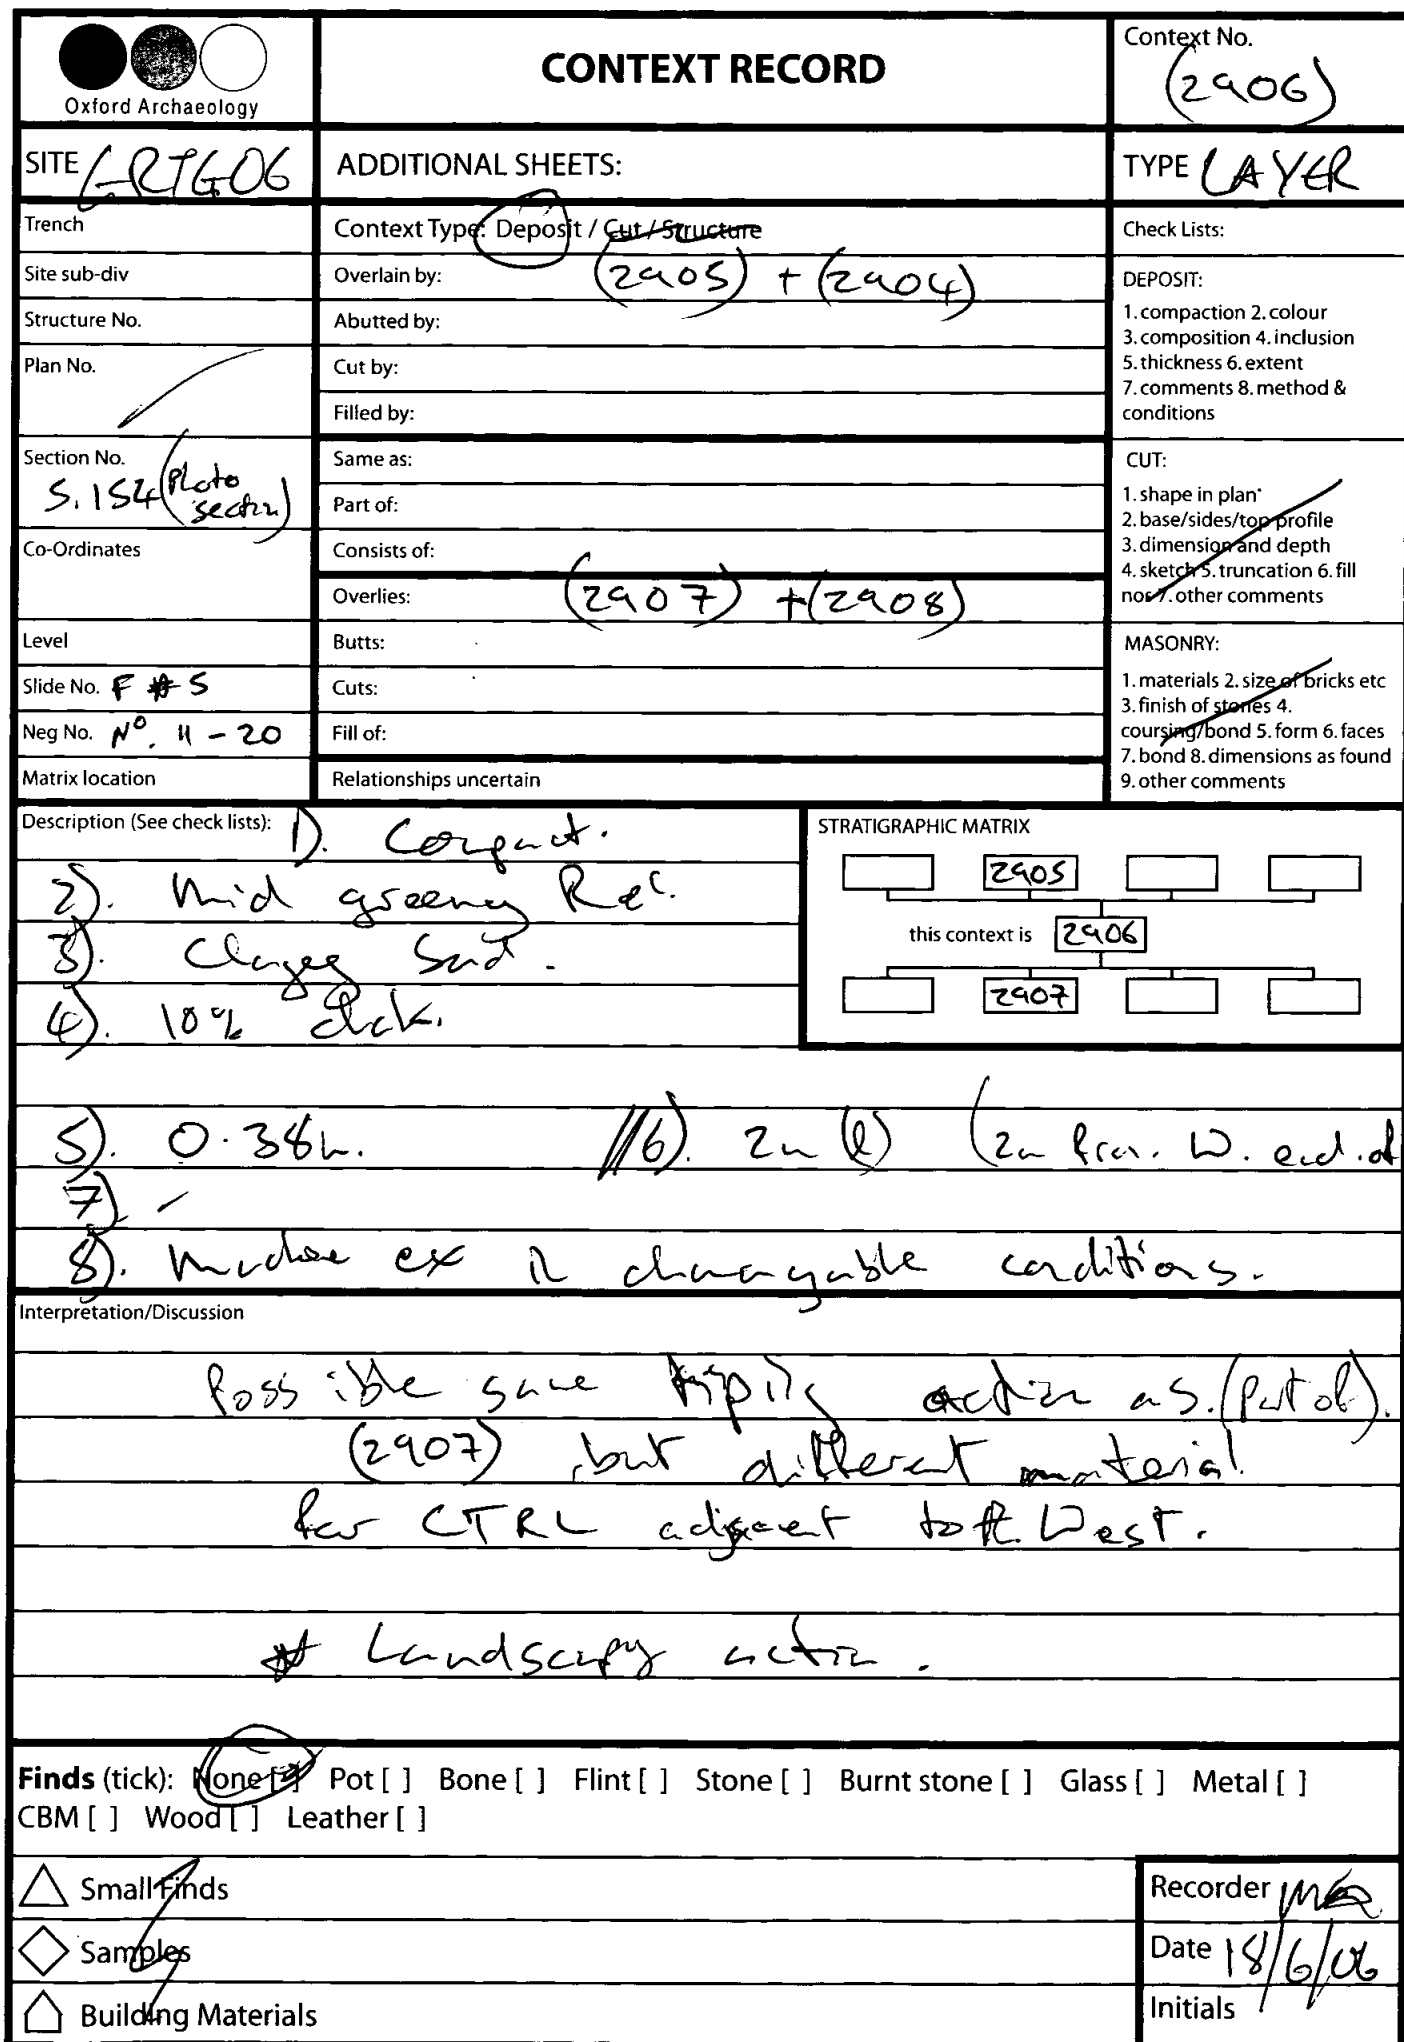 Oxford Archaeology
CONTEXT RECORD
Context No.
(2906)
SITE GRTG06
ADDITIONAL SHEETS:
TYPE LAYER
Trench
Site sub-div
Structure No.
Plan No.
Section No.
S.154 (Photo
section)
Co-Ordinates
Level
Slide No. F # 5
Neg No. Nº. 11 - 20
Matrix location
Context Type: Deposit / Cut / Structure
Overlain by: (2905) + (2904)
Abutted by:
Cut by:
Filled by:
Same as:
Part of:
Consists of:
Overlies: (2907) + (2908)
Butts:
Cuts:
Fill of:
Relationships uncertain
Check Lists:
DEPOSIT:
1. compaction 2. colour
3. composition 4. inclusion
5. thickness 6. extent
7. comments 8. method &
conditions
CUT:
1. shape in plan
2. base/sides/top profile
3. dimension and depth
4. sketch 5. truncation 6. fill
nos 7. other comments
MASONRY:
1. materials 2. size of bricks etc
3. finish of stones 4.
coursing/bond 5. form 6. faces
7. bond 8. dimensions as found
9. other comments
Description (See check lists): 1). Compact.
2). Mid greeney Red.
3). Clayey Sand.
4). 10% chalk.
5). 0.38m. //6). 2m (l) (2m from. W. end. of
7) -
8). Machine ex in changable conditions.
STRATIGRAPHIC MATRIX
2905
this context is 2906
2907
Interpretation/Discussion
Possible same tipping action as. (Part of).
(2907), but different material.
for CTRL adjacent to the West.
* Landscapy action.
Finds (tick): None [ ] Pot [ ] Bone [ ] Flint [ ] Stone [ ] Burnt stone [ ] Glass [ ] Metal [ ]
CBM [ ] Wood [ ] Leather [ ]
Small Finds
Samples
Building Materials
Recorder
Date 18/6/06
Initials